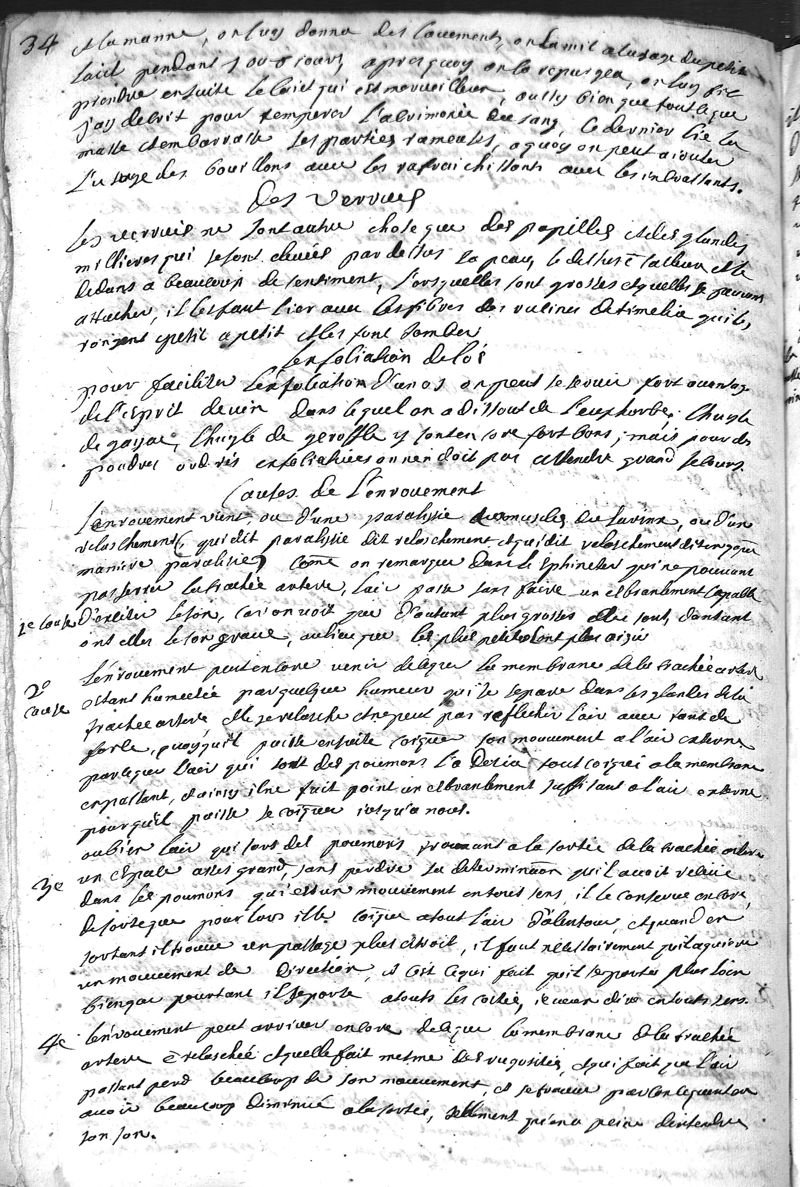 34 et la manne, on luy donna des lavements, on la mit a lusage du petit
lait pendant 5 ou 6 jours apres quoy on la repurgea, on luy fit
prendre ensuite le lait qui est merveilleux, aussy bien que tout ce que
j'ay decrit pour temperer l'acrimonie du sang, ce dernier lie la
masse et embarrasse les parties rameuses, a quoy on peut ajouter
l'usage des bouillons avec les rafraichissants avec les incrassants.
Des verrues
les verrues ne sont autre chose que des papilles et des glandes
millieres qui se sont elevées par dessus la peau, le dessus est calleux et le
dedans a beaucoup de sentiment, lorsquelles sont grosses et quelles se peuvent
attacher, il les faut lier avec les fibres des racines de timelea qui les
rongent petit a petit et les font tomber
l'exfoliation de l'os
pour faciliter l'exfoliation d'un os on peut se servir fort avantag
de l'esprit de vin dans lequel on a dissout de l'euphorbe, l'huyle
de gayac, l'huyle de geroffle y sont encore fort bons, mais pour des
poudres exfoliatives on n'en doit pas attendre grand secours
Causes de l'enrouement
l'enrouement vient, ou d'une paralisie des muscles du larinx, ou d'un
relaschement (qui dit paralisie dit relaschement, et qui dit relaschement dit en quelque
maniere paralisie) come on remarque dans le sphincter qui ne pouvant
pas serrer la trachée artere, l'air passe sans faire un esbranlement capable
1e cause d'exciter le son, car on voit que d'autant plus grosses elles sont, d'autant
ont elles le son grave, au lieu que les plus petites l'ont plus aigu
2e cause l'enrouement peut encore venir de ce que la membrane de la trachée artere
estant humectée par quelque humeur qui se separe dans les glandes de la
trachée artere elle se relasche et ne peut pas reflechir l'air avec tant de
force, quoyqu'il puisse ensuite coiquer son mouvement a l'air externe
parceque l'air qui sort des poumons l'a desia tout coiqué a la membrane
en passant, et ainsy il ne fait point un esbranlement suffisant a l'air externe
pour qu'il puisse se coiquer iusqu'a nous.
3e ou bien l'air qui sort des poumons trouvant a la sortie de la trachée artere
un espace asses grand, sans perdre sa determination qu'il avoit receüe
dans les poumons qui est un mouvement en tous sens, il le conserve encore,
de sorte que pour lors il le coique a tout l'air d'alentour, et quand en
sortant il trouve un passage plus etroit, il faut necessairement qu'il aquiere
un mouvement de direction, et c'est ce qui fait qu'il se porte plus loin
bien que pourtant il se porte a touts les cotés, ie veux dire en touts sens.
4e l'enrouement peut arriver encore de ce que la membrane de la trachée
artere est relaschée et quelle fait mesme des rugosités, ce qui fait que l'air
passant perd beaucoup de son mouvement, et se trouve par consequent en
avoir beaucoup diminué a la sortie, tellement qu'on a peine d'entendre
son son.